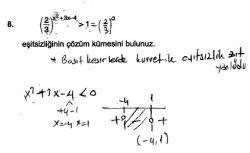 8. (2/3)^(x²+3x-4) > 1 ÷ (2/3)^0
eşitsizliğinin çözüm kümesini bulunuz.
* Basit kesirlerde kuvvetik eşitsizlik zıt
yönlüdür
x² + 3x - 4 < 0
+4 -1
x=-4 x=1
-4 1
+ 0 - 0 +
(-4, 1)